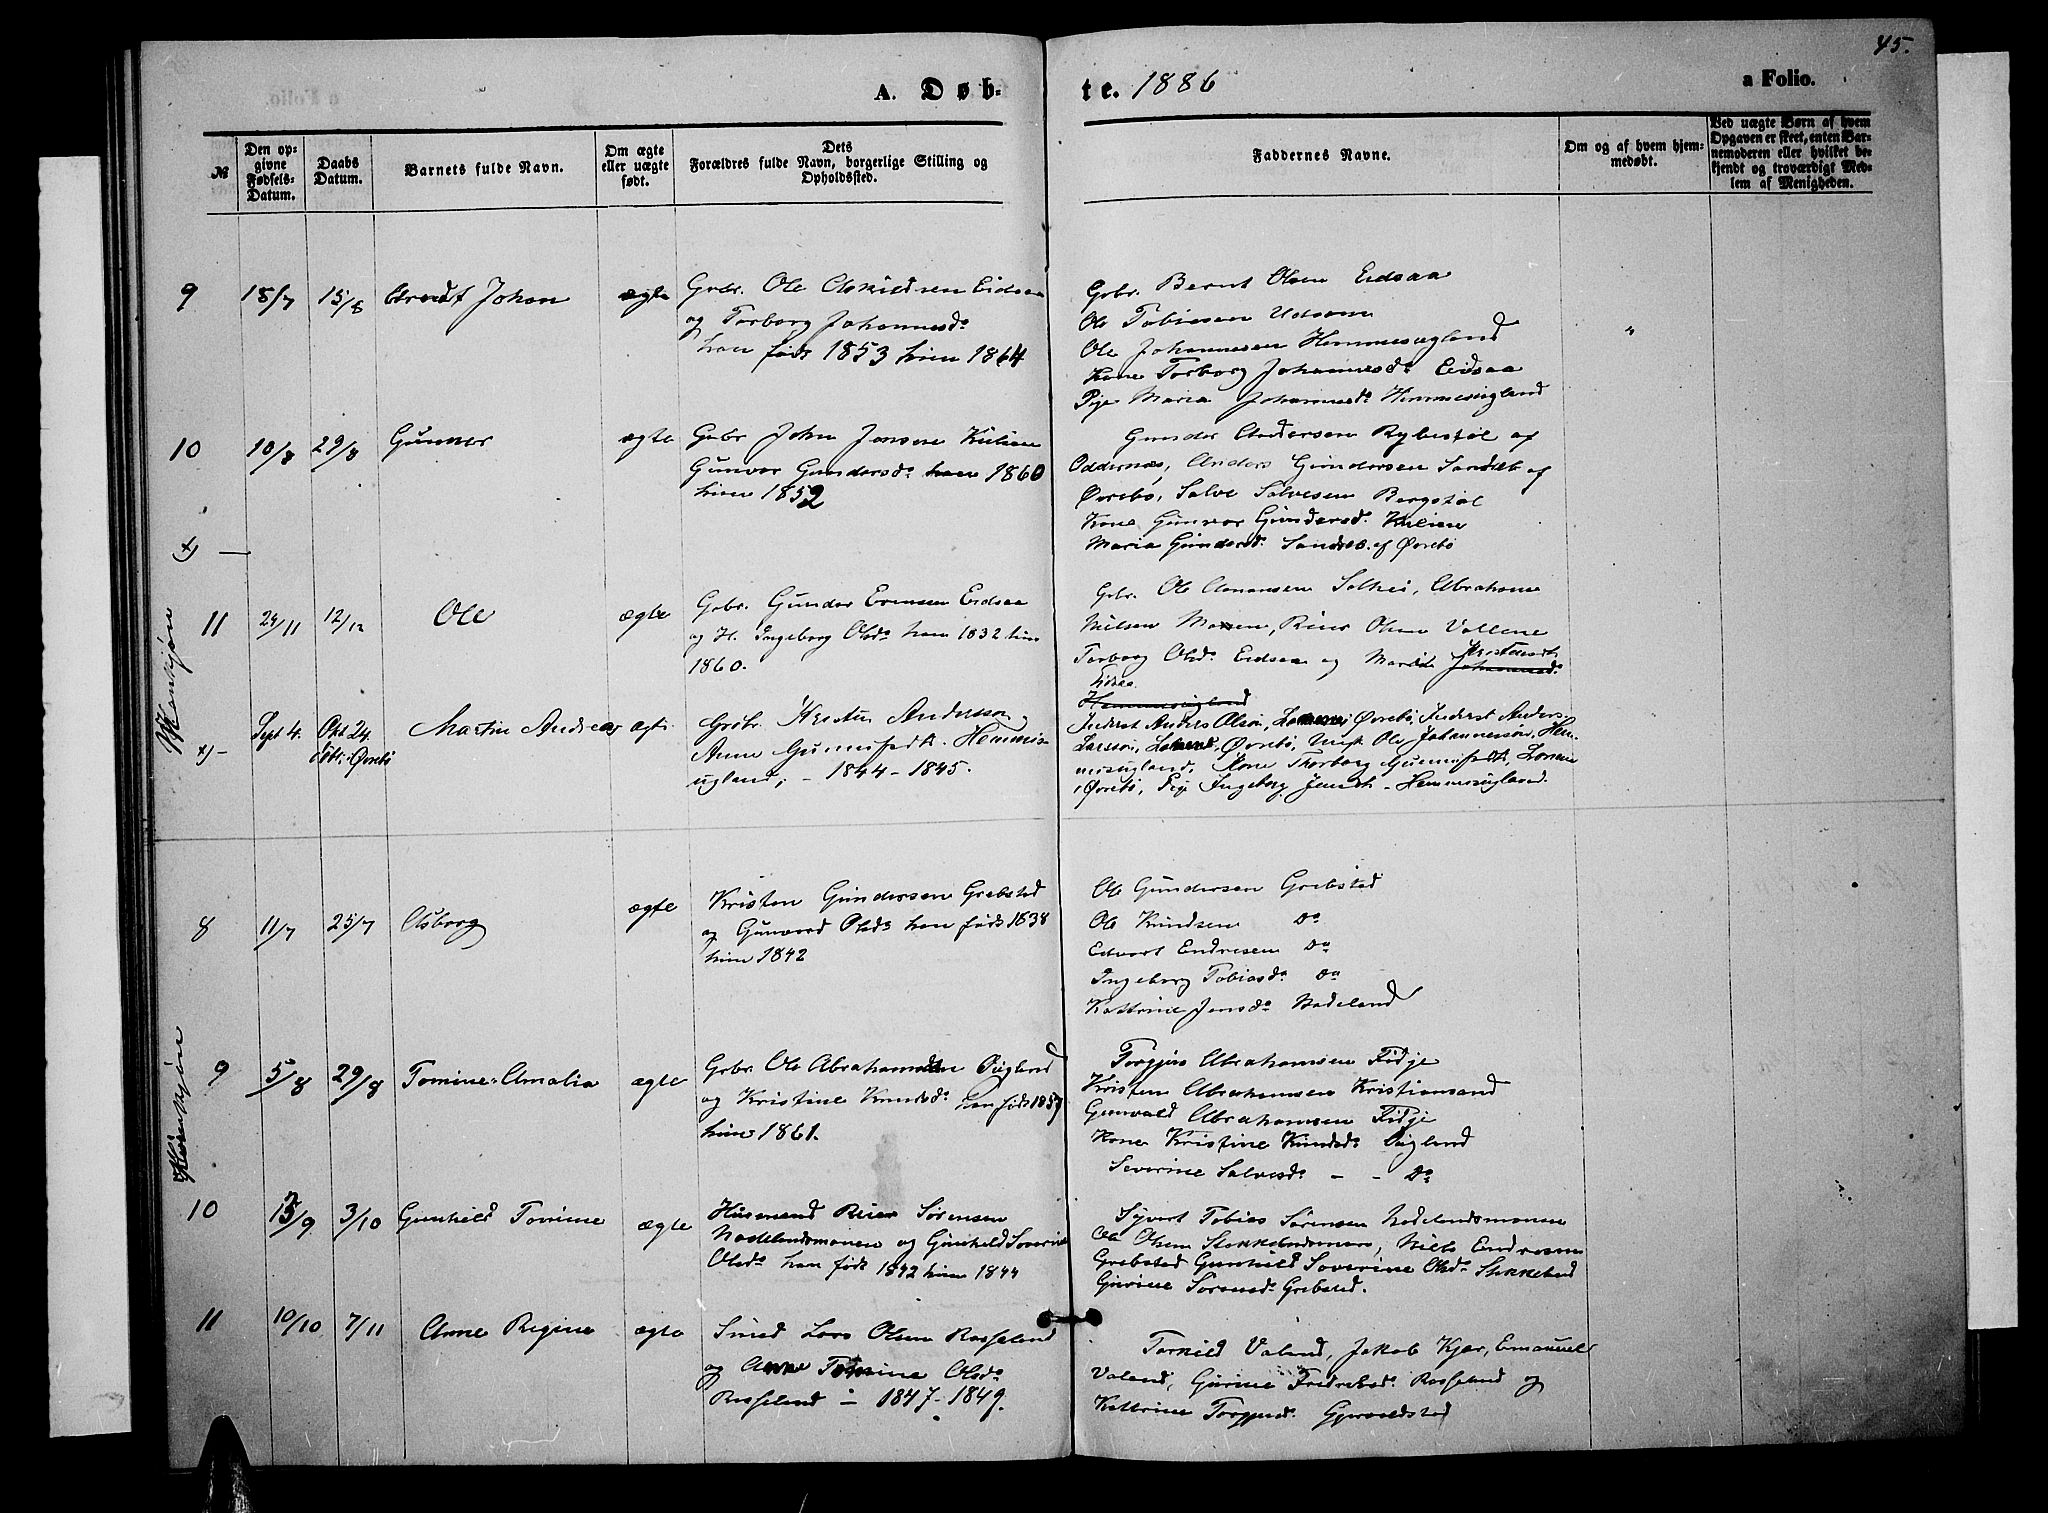 45.
A. Døb-
te. 1886
a Folio.
№
Den op-
givne
Fødsels-
Datum.
Daabs
Datum.
Barnets fulde Navn.
Om ægte
eller uægte
født.
Dets
Forældres fulde Navn, borgerlige Stilling og
Opholdssted.
Faddernes Navne.
Om og af hvem hjem-
medøbt.
Ved uægte Børn af hvem
Opgaven er skeet, enten Bar-
nemoderen eller hvilket be-
kjendt og troværdigt Med-
lem af Menigheden.
9
18/7
15/8
Johan
ægte
Grbr. Ole Eidsaa
og Torborg Johannesd.
han født 1853 hün 1864
Grbr. Bernt Olsen Eidsaa
Ole Tobiasen Udsonn
Ole Johannesen Hemmesugland
Kone Torborg Johannesd. Eidsaa
Pige Maria Johannesd. Hemmesugland
"
10
10/8
29/8
Gunner
ægte
Grbr John Jensen Kulien
Gunvor Gundersd. han 1860
hün 1852
Gunder Andersen Rybestøl af
Oddernæs, Anders Gundersen af
Øvrebø, Salve Salvesen Bergstøl
Kone Gunvor Gündersd. Kulien
Maria Gündersd. af Øvrebø
x) —
Henkjøn
11
24/11
12/12
Ole
ægte
Grbr. Gunder Evensen Eidsaa
og H. Ingeborg Olsd. han 1832 hün
1860.
Grbr. Ole Aanensen Abraham
Nielsen Moen, Reier Olsen Vollene
Torborg Olsd. Eidsaa og Johannesd.
Eidsaa
Hemmesugland
x) —
Sept 4.
Okt 24.
døbt i Øvrebø
Martin Andreas
ægte
Grbr. Kristen Andersson,
Anne Hemmes-
ugland, – 1844 – 1845.
Inderst Anders Olson, i Øvrebø, Inderst Anders
Larsson, Øvrebø, Ungk Ole Johannesson, Hem-
mesugland, Kone Thorborg
i Øvrebø, Pige Ingeborg Hemmesugland.
8
11/7
25/7
Olsborg
ægte
Kristen Gündersen Grebsted
og Gunvord Olsd. han født 1838
hün 1842
Ole Gündersen Grebsted
Ole Knüdsen Do
Edvart Endresen Do
Ingeborg Tobiasd. Do
Kattrine Jensd. Nodeland
Kvinkjøn
9
5/8
29/8
Tomine Amalia
ægte
Grbr. Ole Abrahamsen Øügland
og Kristine Knudsd. han født 1859
hüne 1861.
Torgjus Abrahamsen Fidje
Kristen Abrahamsen Kristiansand
Gunvald Abrahamsen Fidje
Kone Kristine Knüdsd. Øügland
Severine Salvesd. – – Do
10
13/9
3/10
Gunhild Tomine
ægte
Hüsmand Reier Sørensen
Nodelandsmonen og Günhild Soverine
Olsd. han født 1842 hün 1844
Syvert Tobias Sørensen Nodelandsmonen
Ole Olsen Niels Endresen
Grebsted Gunhild Soverine Olsd. Stokkeland
Gurine Sørensd. Grebsted.
11
10/10
7/11
Anne Regine
ægte
Smed Lars Olsen Rosseland
og Anne Tomine Olsd.
Rosseland – 1847 – 1849.
Torkild Valand, Jakob Kjær, Emanuel
Valand, Gurine Fredriksd. Rosseland og
Kattrine Torgjusd. Gjervoldstad